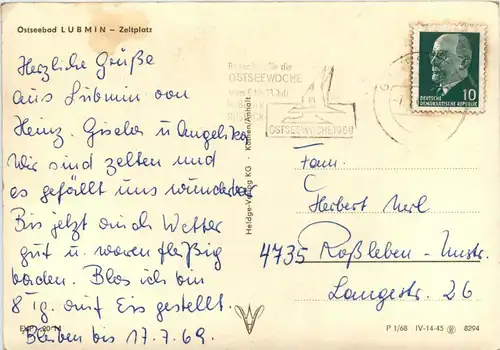 Ostseebad LUBMIN – Zeltplatz
Herzliche Grüße
aus Lubmin von
Heinz, Gisela u Angelika
Wir sind zelten und
es gefällt uns wunderbar
Bis jetzt auch Wetter
gut u. waren fleißig
baden. Blos ich bin
8 Tg. auf Eis gestellt.
Bleiben bis 17.7.69.
die
OSTSEEWOCHE
OSTSEEWOCHE 1969
DEUTSCHE
DEMOKRATISCHE REPUBLIK
10
Heldge-Verlag KG · Köthen/Anhalt
Fam.
Herbert
4735 Roßleben-Unstr.
Langestr. 26
P 1/68 IV-14-45 8294